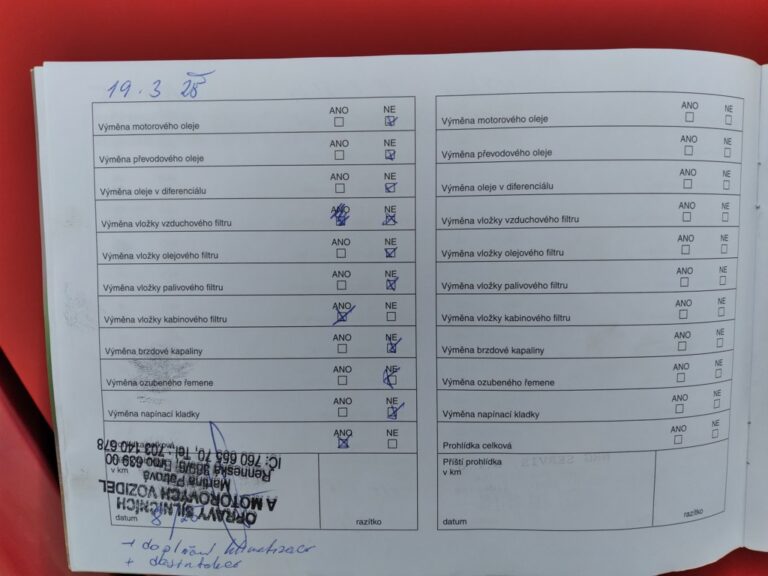 19. 3 25
ANO NE
Výměna motorového oleje
ANO NE
Výměna převodového oleje
ANO NE
Výměna oleje v diferenciálu
ANO NE
Výměna vložky vzduchového filtru
ANO NE
Výměna vložky olejového filtru
ANO NE
Výměna vložky palivového filtru
ANO NE
Výměna vložky kabinového filtru
ANO NE
Výměna brzdové kapaliny
ANO NE
Výměna ozubeného řemene
ANO NE
Výměna napínací kladky
ANO NE
OPRAVY SILNIČNÍCH
A MOTOROVÝCH VOZIDEL
Martina Petrová
Renneská 369/6, Brno 639 00
IČ: 760 665 70, Tel.: 703 140 578
datum
razítko
+ doplnění klimatizace
+ desinfekce
ANO NE
Výměna motorového oleje
ANO NE
Výměna převodového oleje
ANO NE
Výměna oleje v diferenciálu
ANO NE
Výměna vložky vzduchového filtru
ANO NE
Výměna vložky olejového filtru
ANO NE
Výměna vložky palivového filtru
ANO NE
Výměna vložky kabinového filtru
ANO NE
Výměna brzdové kapaliny
ANO NE
Výměna ozubeného řemene
ANO NE
Výměna napínací kladky
ANO NE
Prohlídka celková
Příští prohlídka
v km
datum
razítko